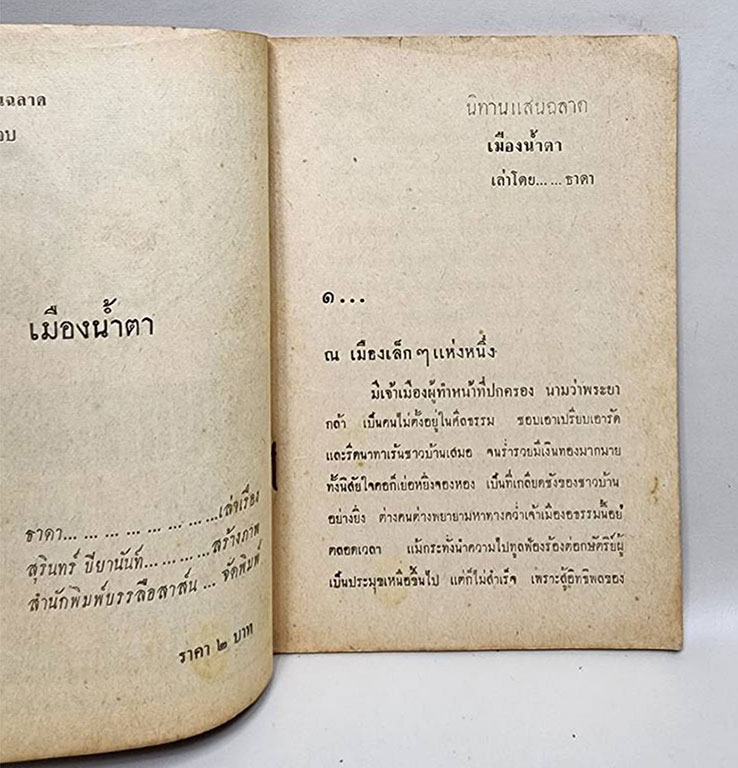 นฉลาด
อบ
เมืองน้ำตา
ธาดา... ... ... ... ... ... ... ...เล่าเรื่อง
สุรินทร์ ปิยานันท์... ... ... ...สร้างภาพ
สำนักพิมพ์บรรลือสาส์น ... จัดพิมพ์
ราคา ๒ บาท
นิทานแสนฉลาด
เมืองน้ำตา
เล่าโดย... ... ธาดา
๑...
ณ เมืองเล็ก ๆ แห่งหนึ่ง
มีเจ้าเมืองผู้ทำหน้าที่ปกครอง นามว่าพระยา
กล้า เป็นคนไม่ตั้งอยู่ในศีลธรรม ชอบเอาเปรียบเอารัด
และรีดนาทาเร้นชาวบ้านเสมอ จนร่ำรวยมีเงินทองมากมาย
ทั้งนิสัยใจคอก็เย่อหยิ่งจองหอง เป็นที่เกลียดชังของชาวบ้าน
อย่างยิ่ง ต่างคนต่างพยายามหาทางคว่ำเจ้าเมืองอธรรมนี้อยู่
ตลอดเวลา แม้กระทั่งนำความไปทูลฟ้องร้องต่อกษัตริย์ผู้
เป็นประมุขเหนือขึ้นไป แต่ก็ไม่สำเร็จ เพราะผู้อิทธิพลของ